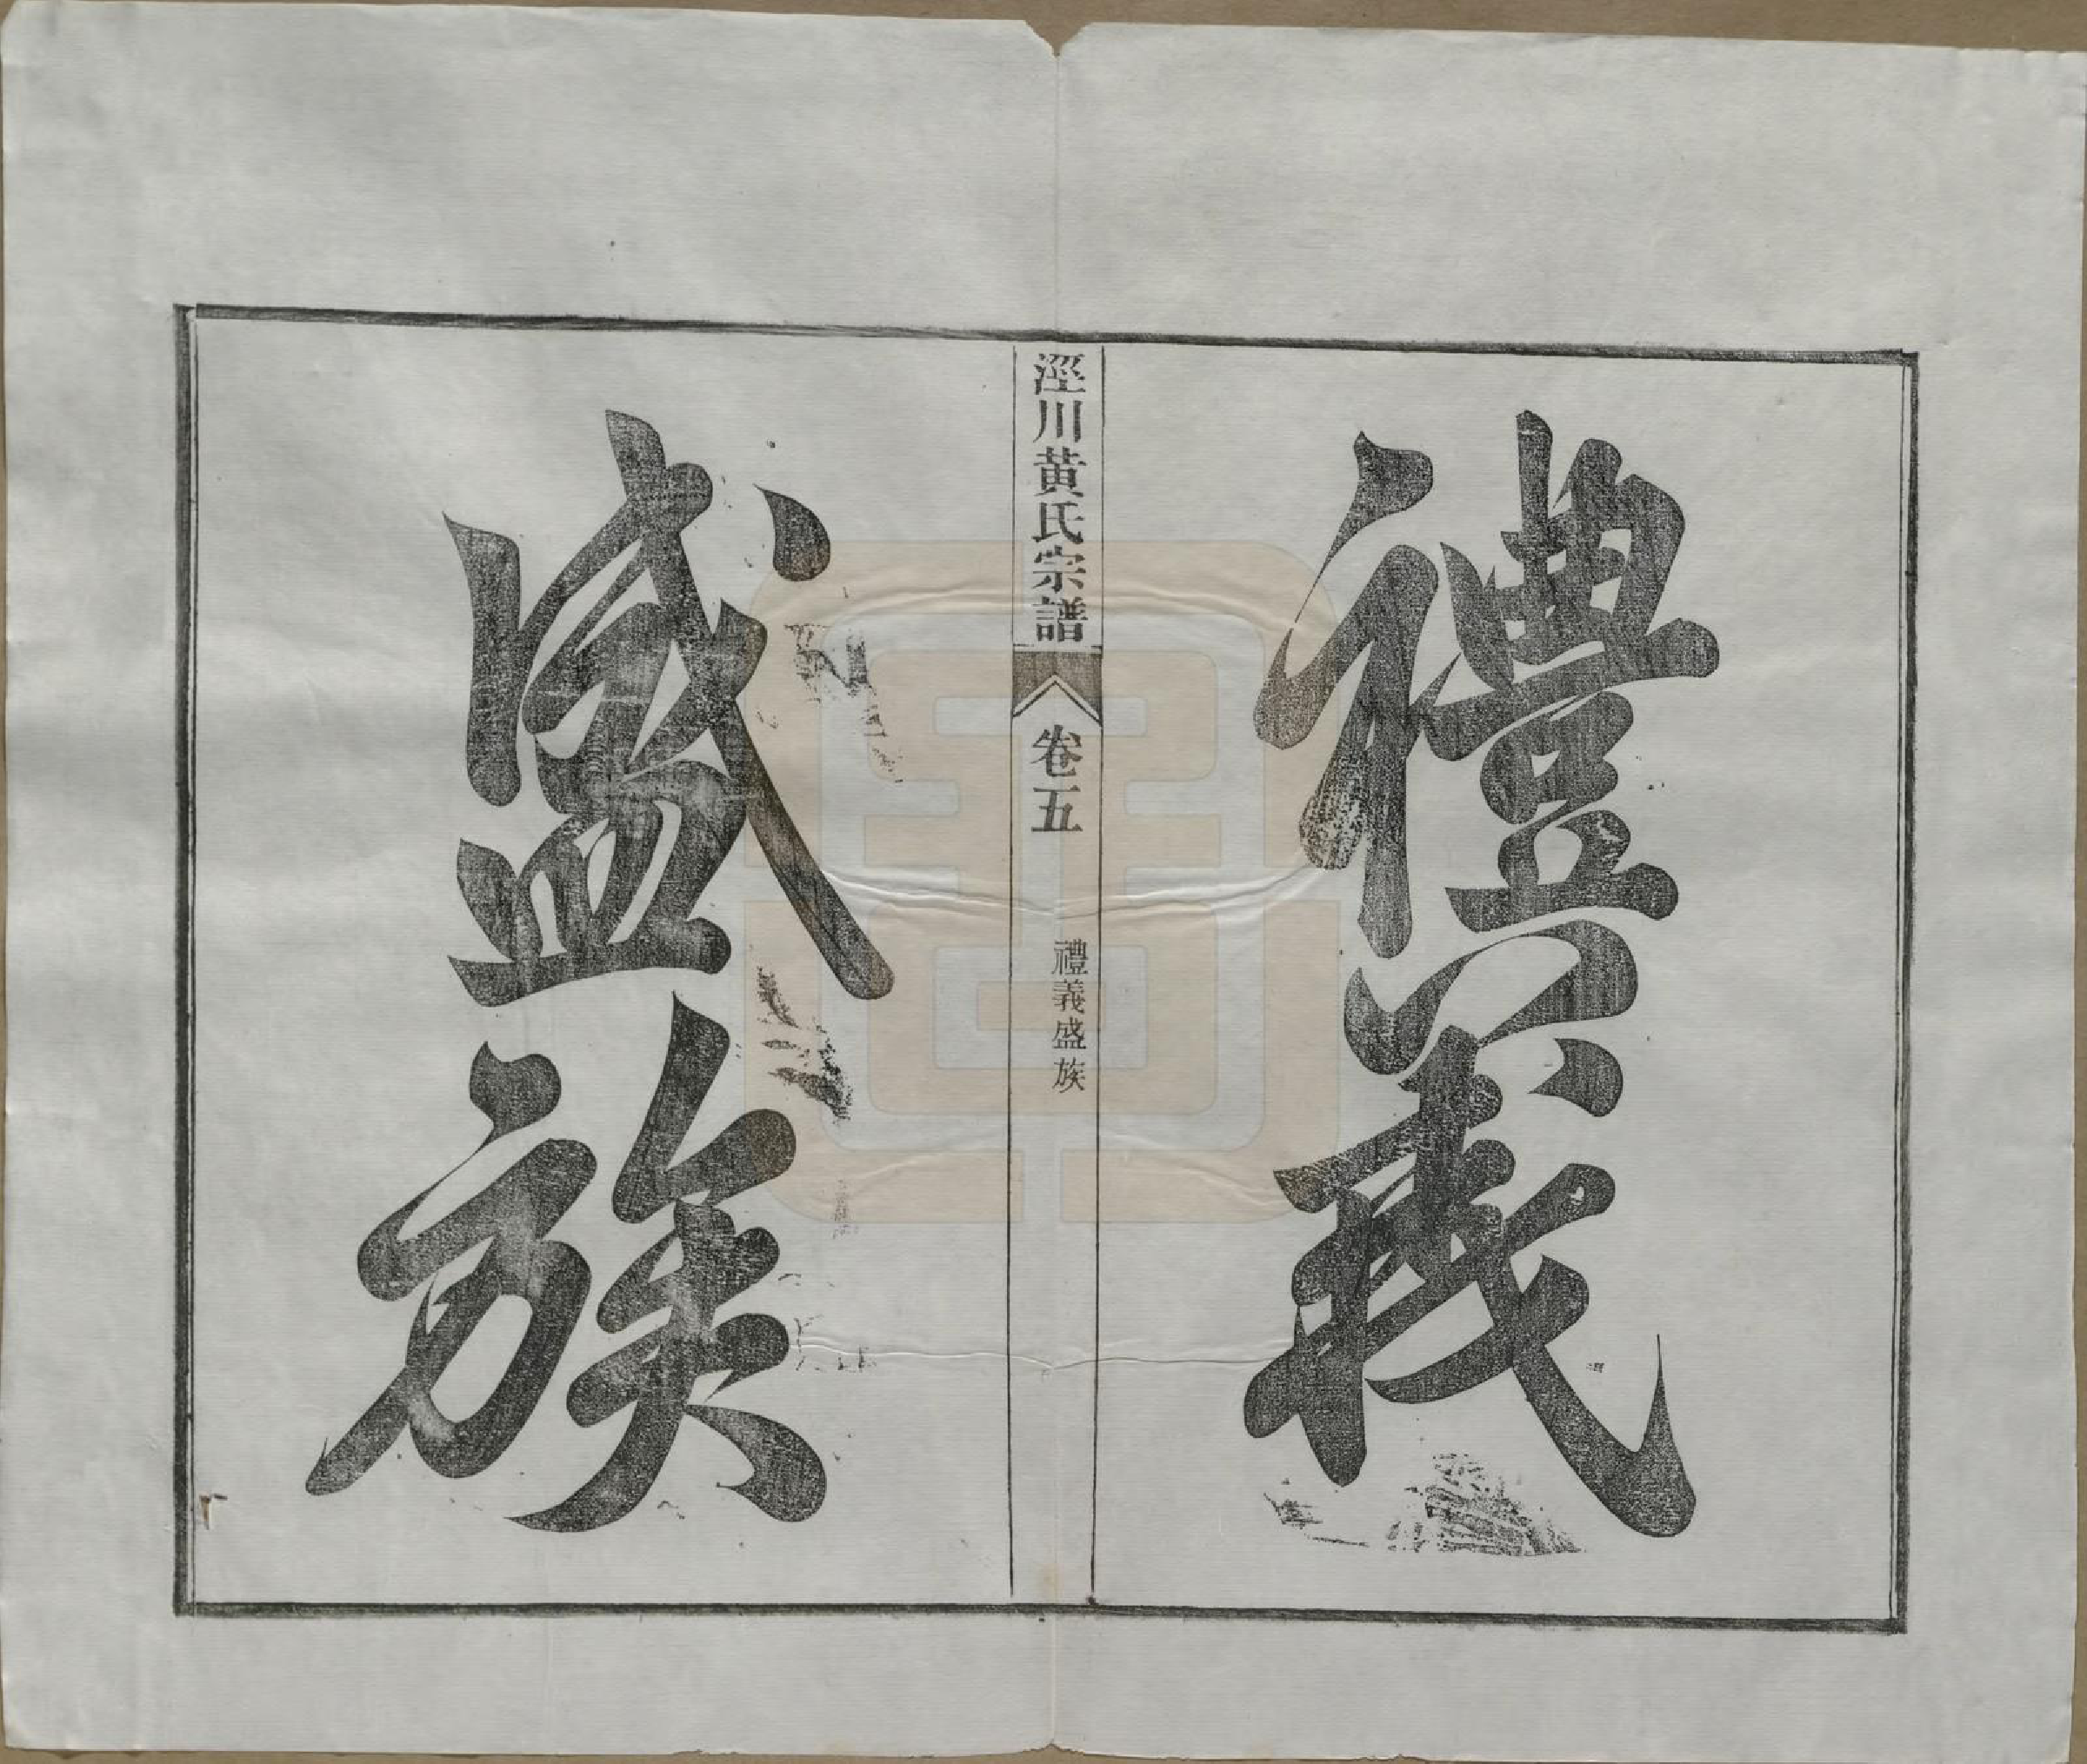 禮義
涇川黄氏宗譜
卷五
禮義盛族
盛族